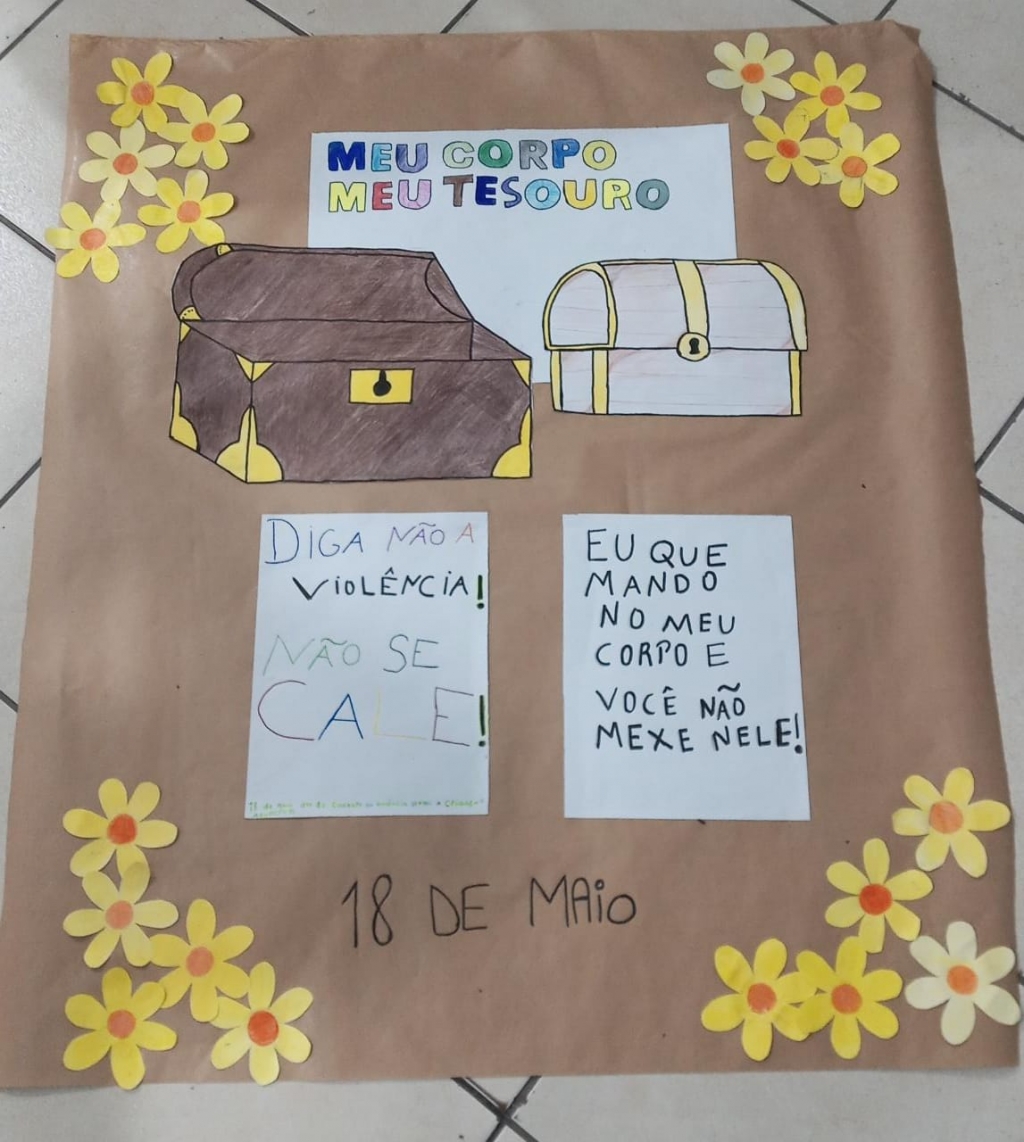 MEU CORPO
MEU TESOURO
DIGA NÃO A
VIOLÊNCIA!
NÃO SE
CALE!
18 de
EU QUE
MANDO
NO MEU
CORPO E
VOCÊ NÃO
MEXE NELE!
18 DE MAIO